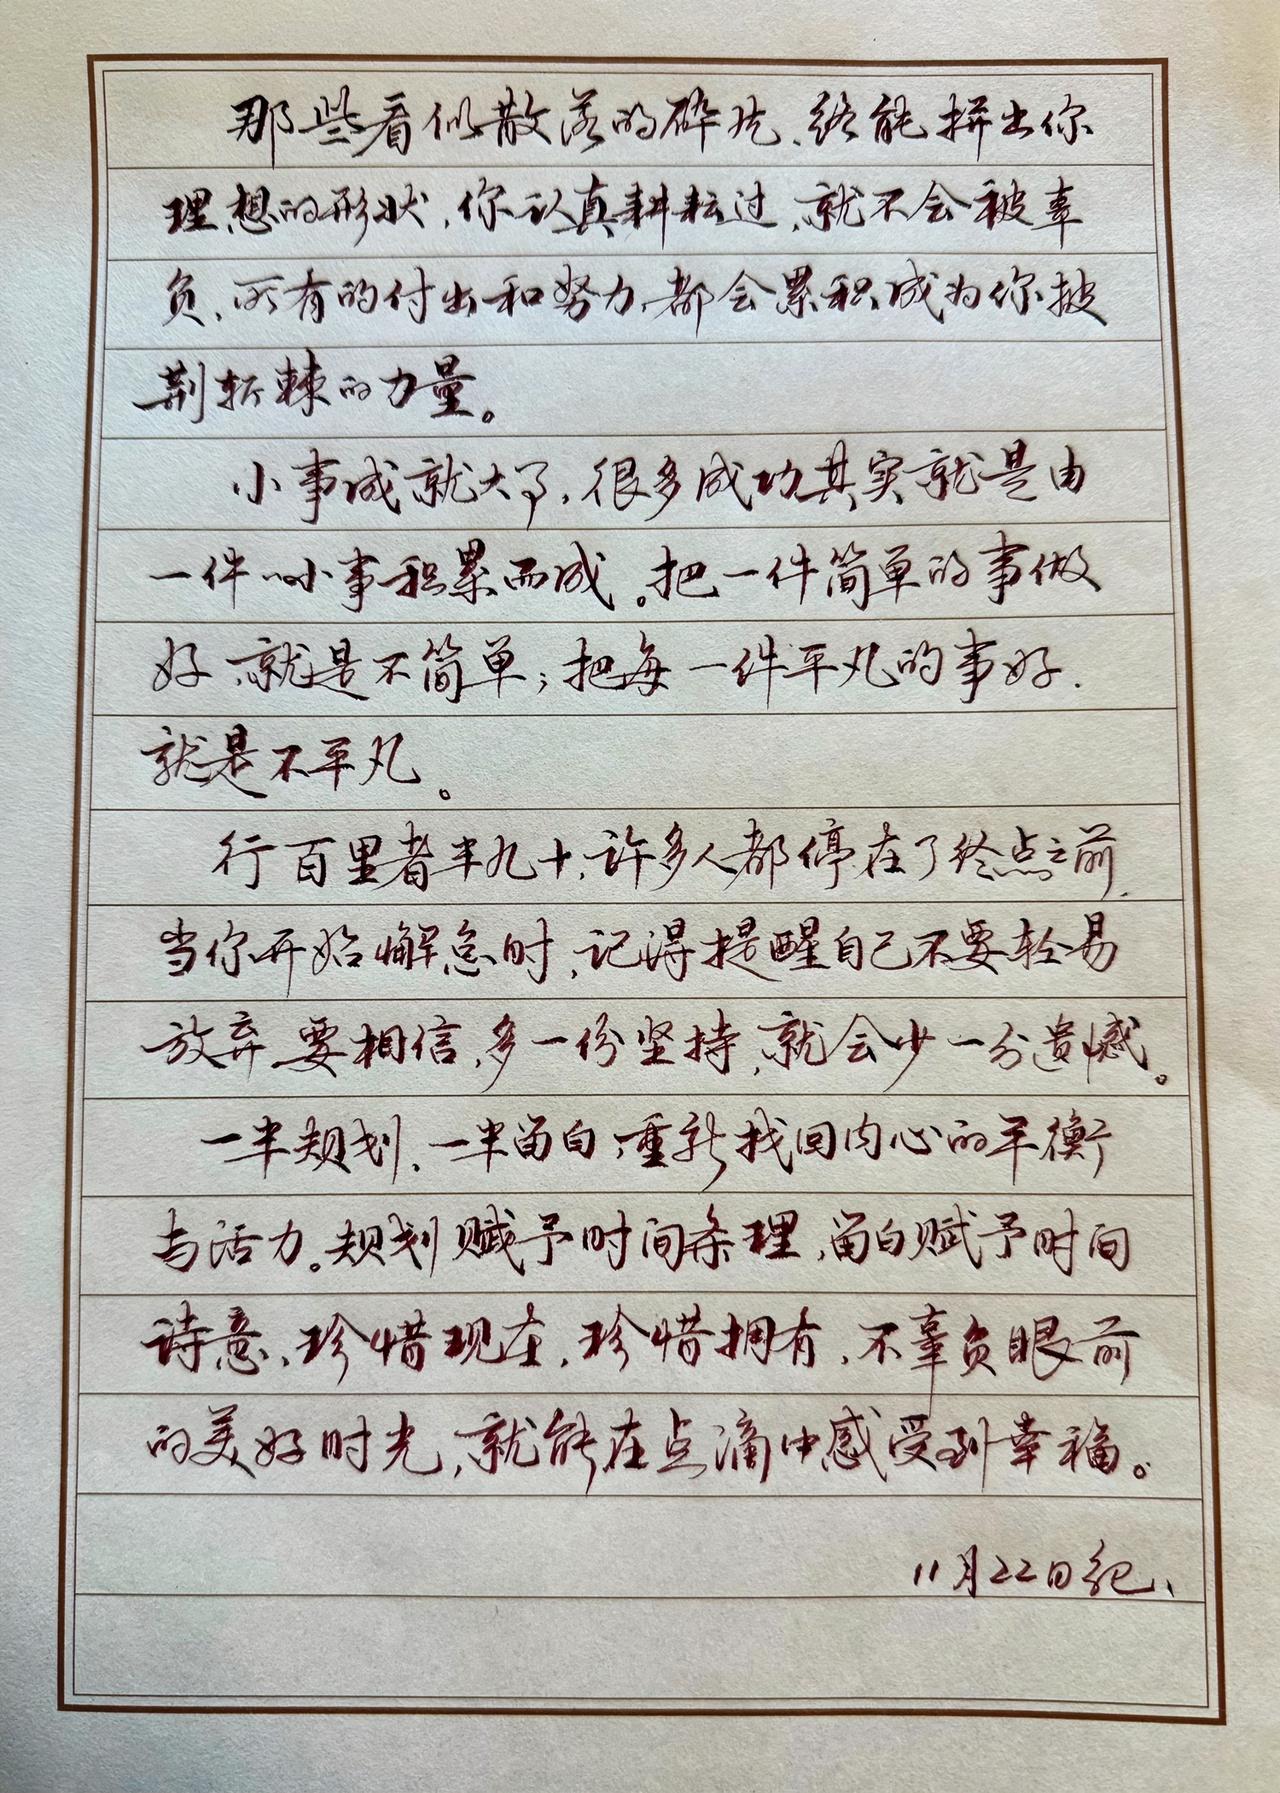 那些看似散落的碎片、终能拼出你
理想的形状，你认真耕耘过、就不会被辜
负、所有的付出和努力、都会累积成为你披
荆斩棘的力量。
小事成就大事，很多成功其实就是由
一件小事积累而成。把一件简单的事做
好、就是不简单；把每一件平凡的事好、
就是不平凡。
行百里者半九十，许多人都停在了终点之前、
当你开始懈怠时、记得提醒自己不要轻易
放弃要相信，多一份坚持、就会少一分遗憾。
一半规划、一半留白，重新找回内心的平衡
与活力。规划赋予时间条理、留白赋予时间
诗意、珍惜现在、珍惜拥有、不辜负眼前
的美好时光、就能在点滴中感受到幸福。
11月22日纪、